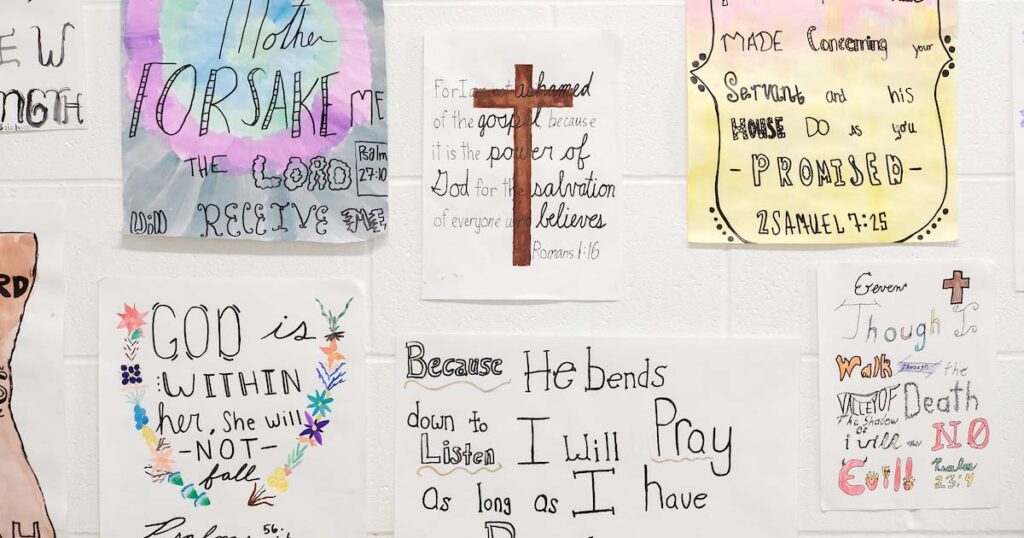 EW
NGTH
Mother
FORSAKE ME
THE LORD
Psalm
27:10
Will RECEIVE ME
For I am not ashamed
of the gospel, because
it is the power of
God for the salvation
of everyone who believes
Romans 1:16
MADE Concerning your
Servant and his
HOUSE DO as you
- PROMISED -
2 SAMUEL 7:25
RD
GOD is
WITHIN
her, She will
- NOT -
fall
Because He bends
down to
Listen I Will Pray
as long as I have
Though I
Walk Through the
VALLEY OF Death
The Shadow
of
i will NO
Evil! Psalm
23:4